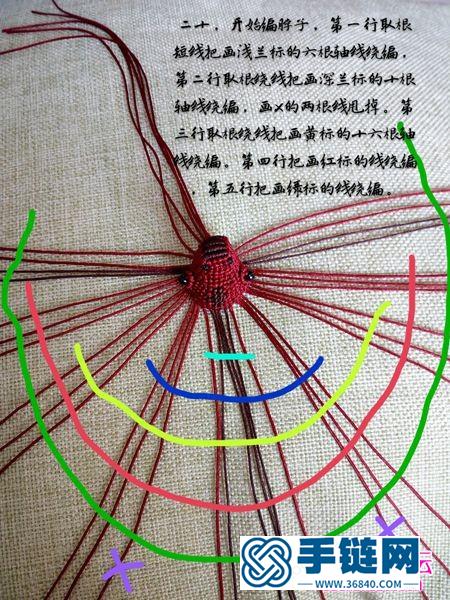 二十，开始编脖子，第一行取根
短线把画浅兰标的六根轴线绕编，
第二行取根绕线把画深兰标的十根
轴线绕编，画X的两根线甩掉。第
三行取根绕线把画黄标的十六根轴
线绕编。第四行把画红标的线绕编
，第五行把画绿标的线绕编。
手链网
坛
WWW.36840.COM